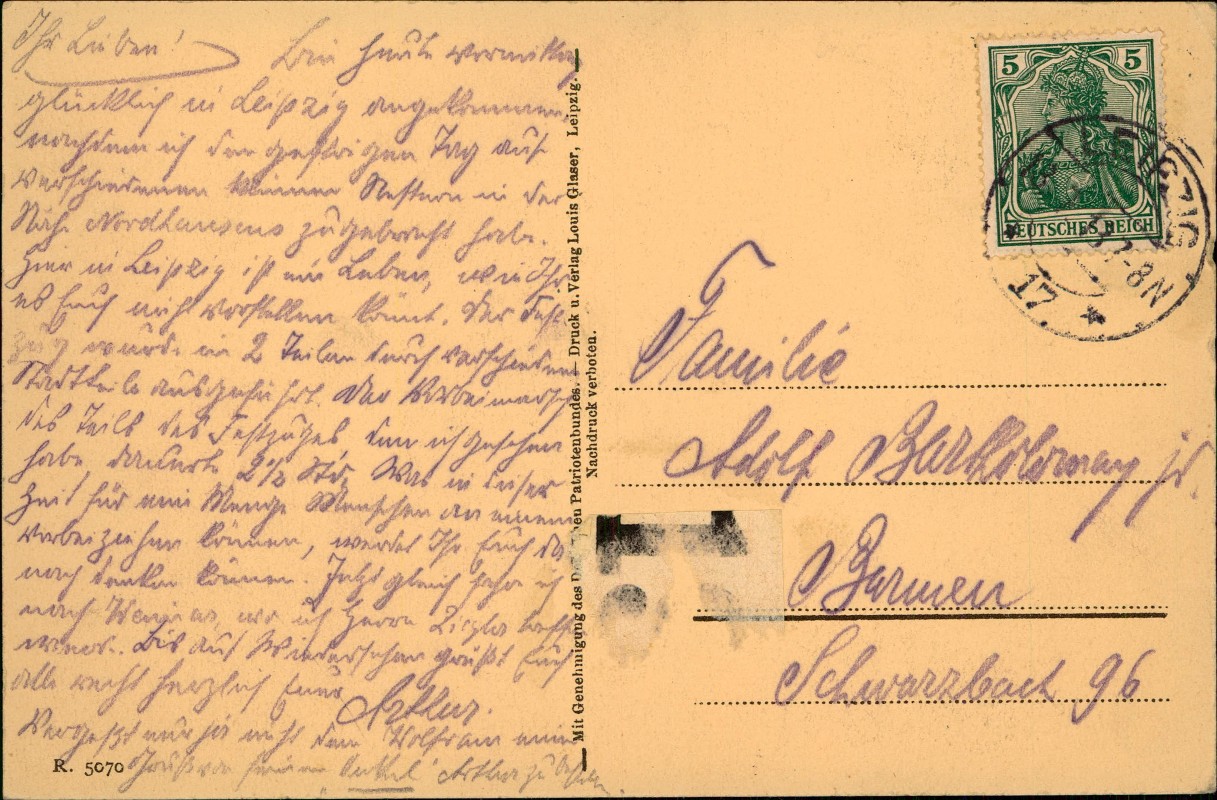 Ihr Lieben!
Bin heute vormittag
glücklich in Leipzig angekommen,
nachdem ich den gestrigen Tag auf
verschiedenen kleinen Nestern in der
Nähe Nordhausens zugebracht habe.
Hier in Leipzig ist ein Leben, wie Ihr
es Euch nicht vorstellen könnt. Der Fest-
zug wurde in 2 Teilen durch verschiedene
Stadtteile ausgeführt. Der Vorbeimarsch
des Teils des Festzuges den ich gesehen
habe, dauerte 2½ Std. Was in dieser
Zeit für eine Menge Menschen an einem
vorbeiziehen können, werdet Ihr Euch da
nach denken können. Jetzt gleich fahre ich
nach Weimar, wo ich Herrn treffen
werde. Bis auf Wiedersehen grüßt Euch
alle recht herzlich Euer
Arthur.
Vergeßt nur ja nicht dem Wolfram einen
Gruß von seinem "Onkel" Arthur zu
R. 5070
Mit Genehmigung des Deutschen Patriotenbundes. — Druck u. Verlag Louis Glaser, Leipzig.
Nachdruck verboten.
5 5
DEUTSCHES REICH
LEIPZIG
17
7-8N
Familie
Adolf Bartholomay jr.
Barmen
Schwarzbach 96